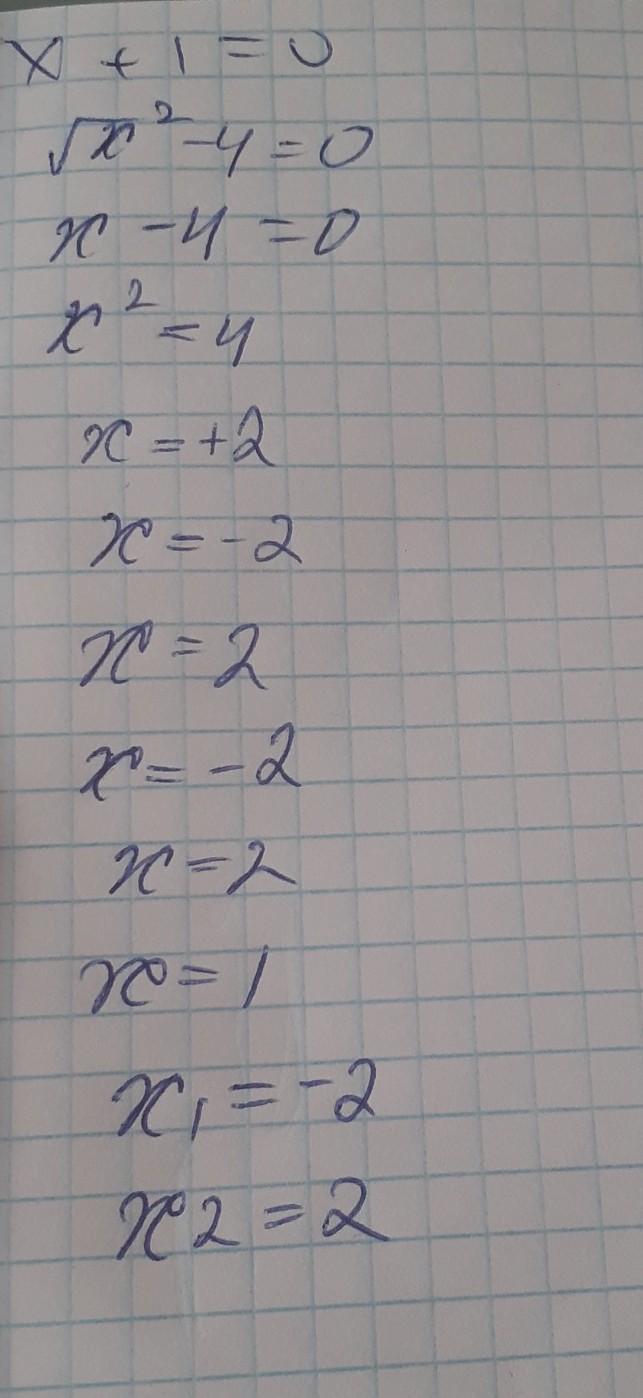 x + 1 = 0
√x² - 4 = 0
x - 4 = 0
x² = 4
x = +2
x = -2
x = 2
x = -2
x = 2
x = 1
x₁ = -2
x2 = 2